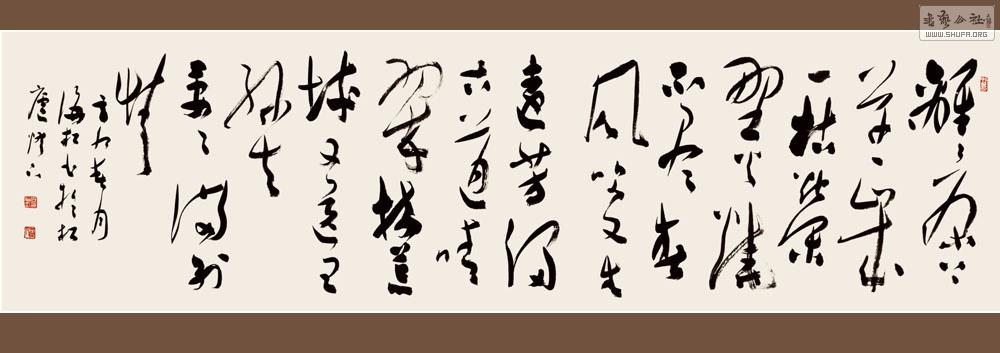 離〻原上
草一歲
一枯榮
野火燒
不盡春
風吹又生
遠芳侵
古道晴
翠接荒
城又送王
孫去
萋〻滿別
情
春月
松書於松
廬下
書藝公社
WWW.SHUFA.ORG